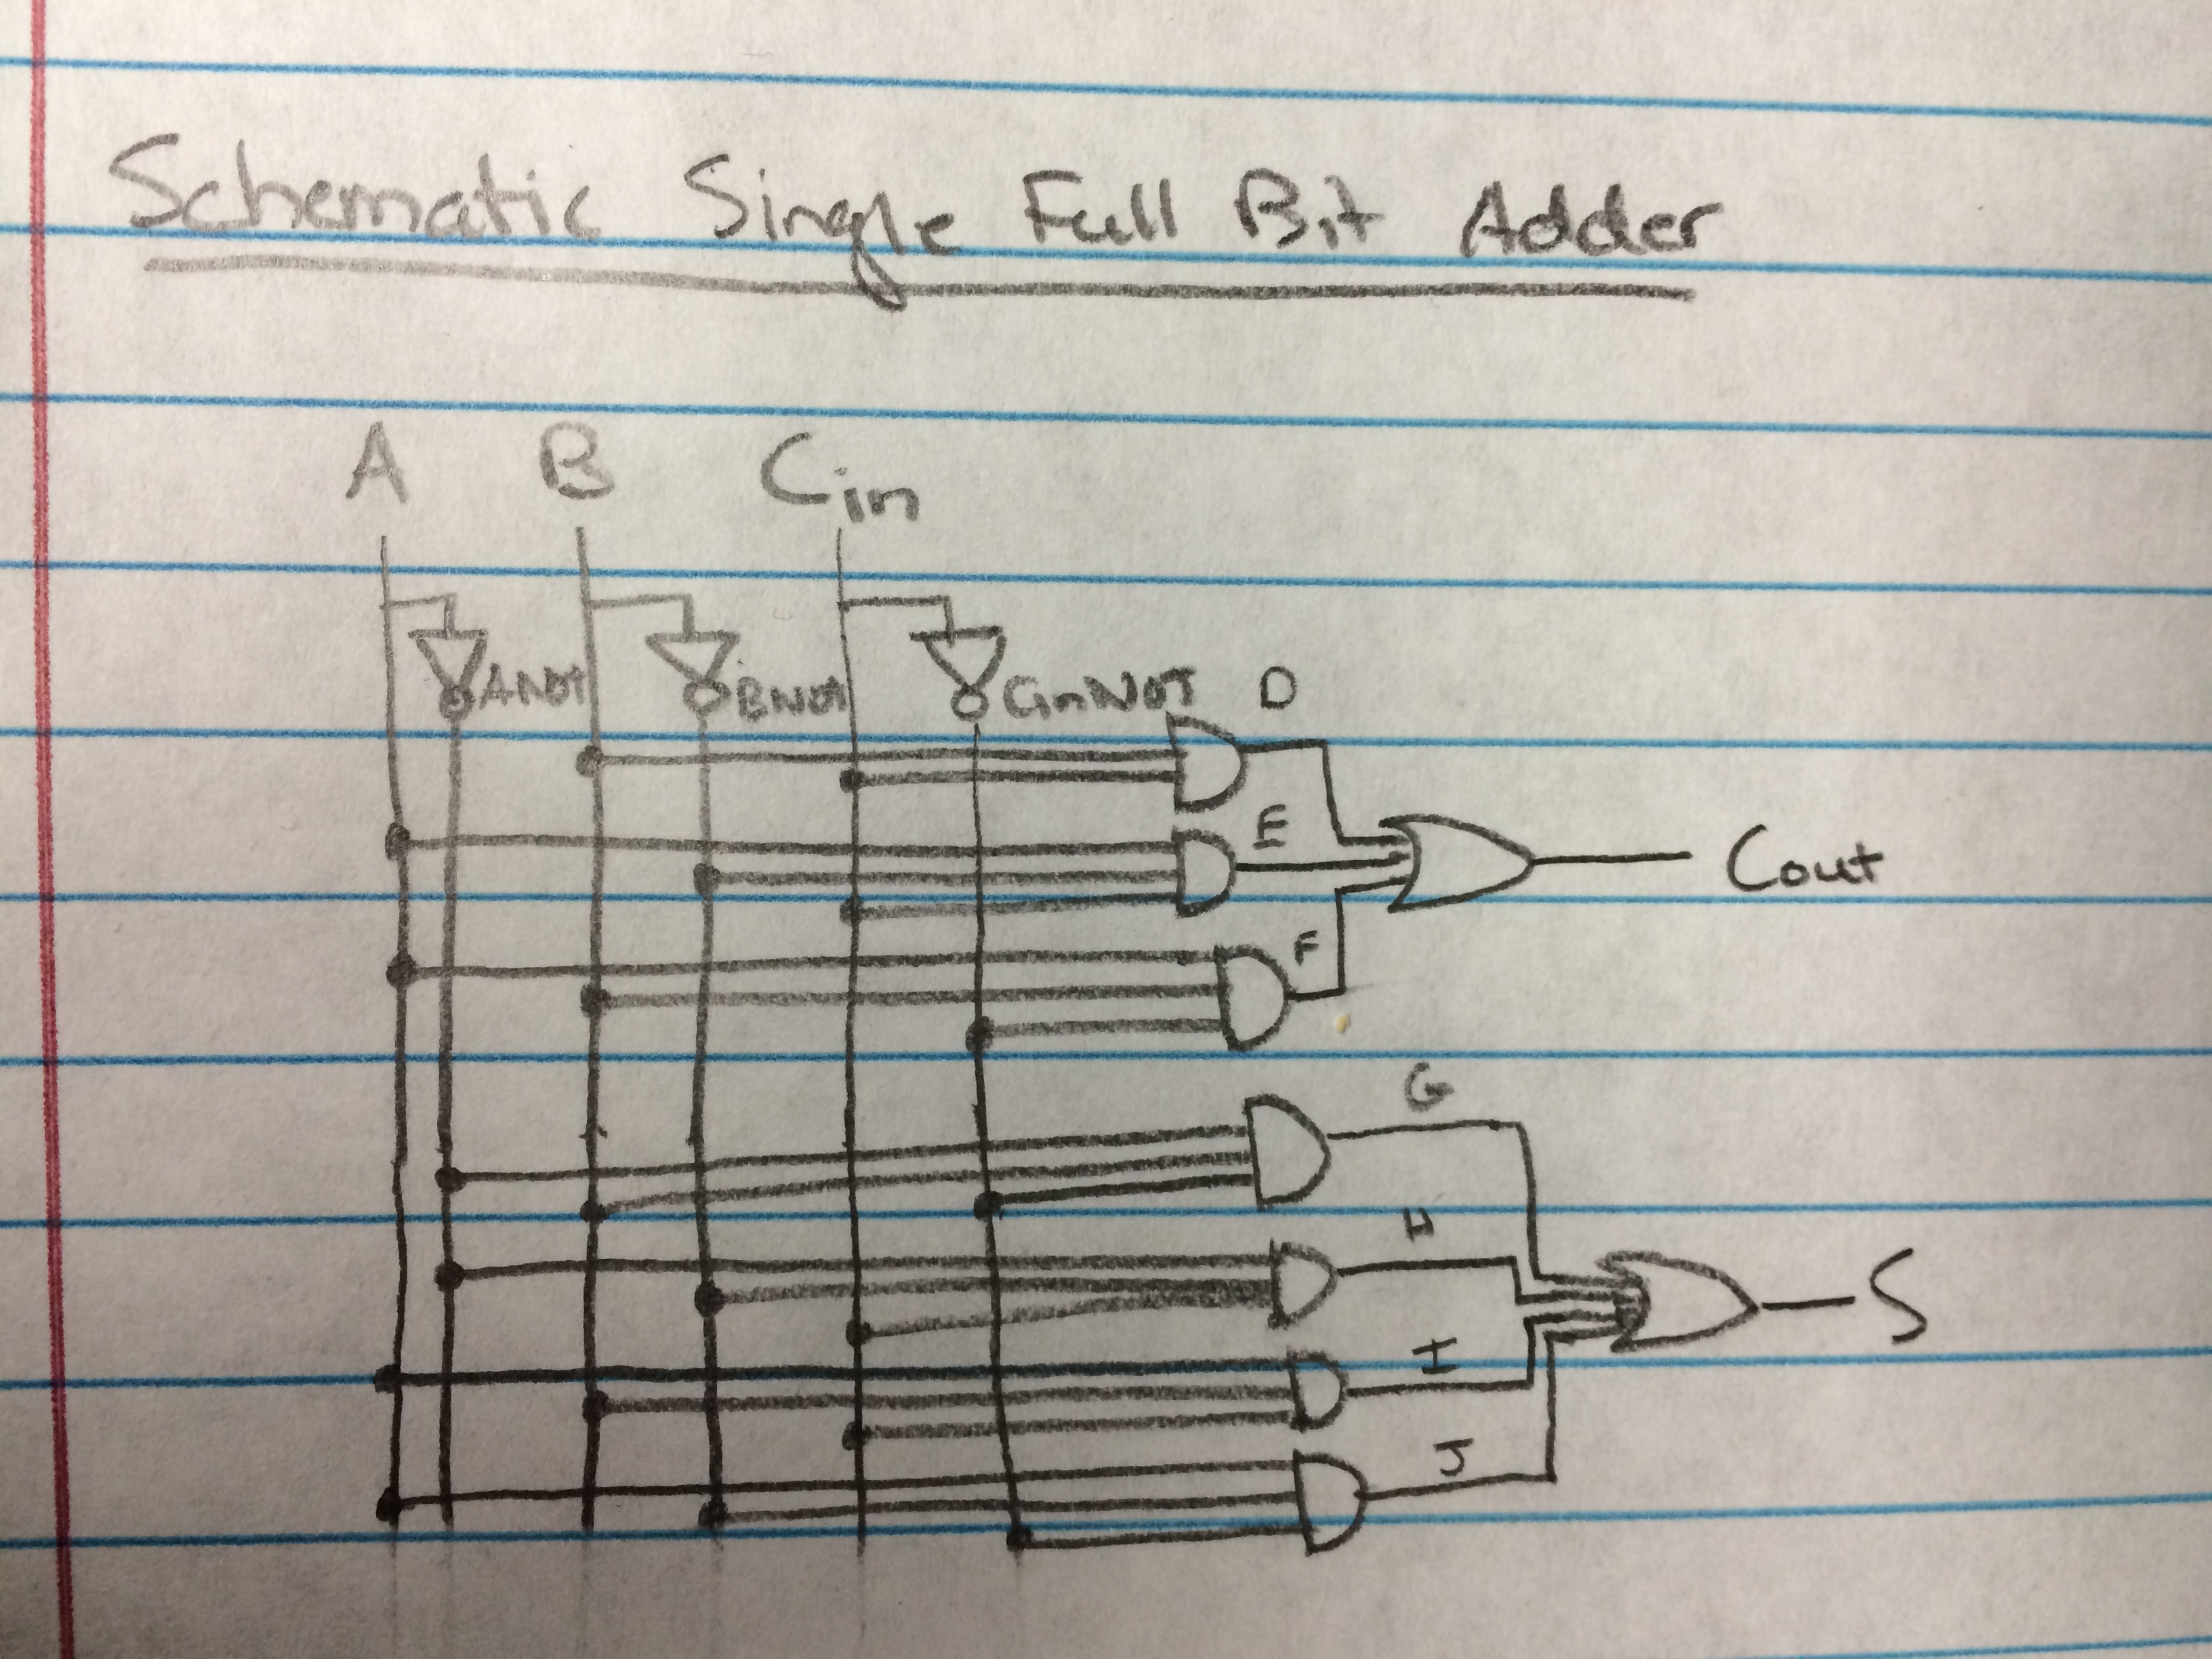 Schematic Single Full Bit Adder
A B Cin
ANOT BNOT CinNOT
D
E
F
Cout
G
H
I
J
S